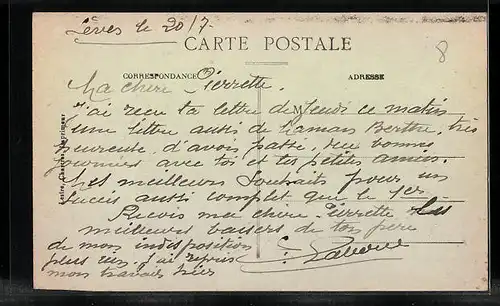 Lèves le 20/7
8
CARTE POSTALE
CORRESPONDANCE
ADRESSE
Ma chère Pierrette.
J'ai reçu ta lettre de Jeudi ce matin
une lettre aussi de Maman Berthe, très
heureuse d'avoir passé, de bonnes
journées avec toi et tes petites amies.
Mes meilleurs souhaits pour un
succès aussi complet que le 1er
Reçois ma chère Pierrette les
meilleurs baisers de ton père
de mon indisposition
plus rien. J'ai repris
mon travail hier